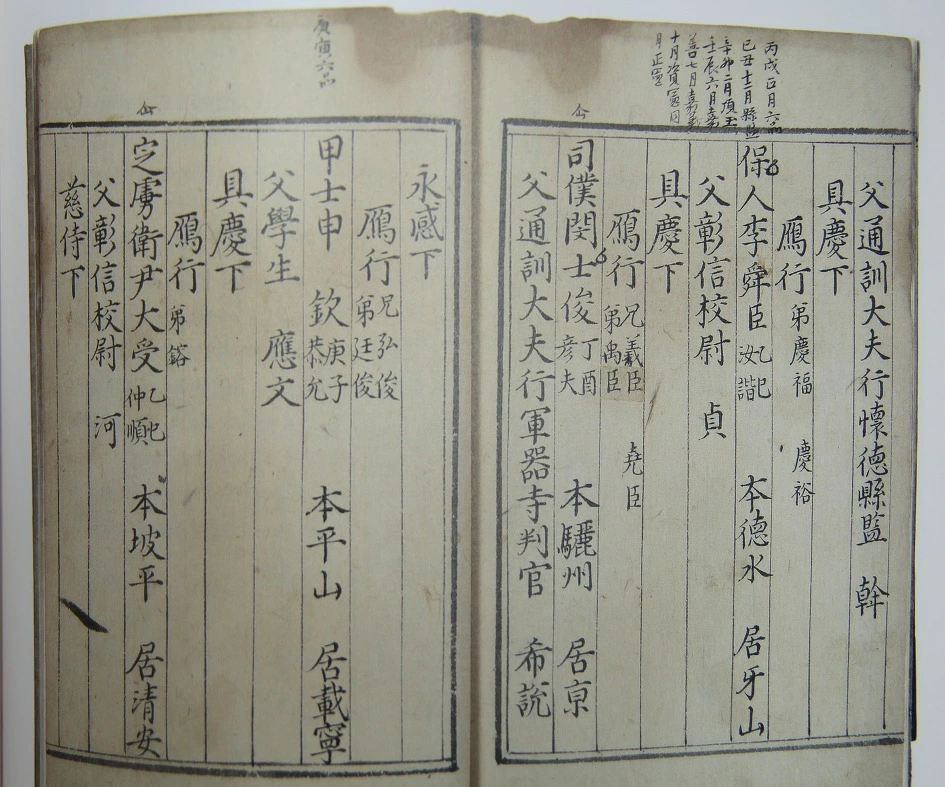 父通訓大夫行懷德縣監 幹
具慶下
鴈行 弟慶福 慶裕
丙戌正月六品
己丑十二月縣監
辛卯二月
壬辰六月嘉善
七月嘉義
十月資憲 同月正憲
保人李舜臣 乙巳 汝諧 本德水 居牙山
父彰信校尉 貞
具慶下
鴈行 兄羲臣 堯臣 弟禹臣
仝
司僕閔士俊 丁酉 彦夫 本驪州 居京
父通訓大夫行軍器寺判官 希說
永感下
鴈行 兄弘俊 弟廷俊
庚寅六品
甲士申 欽 庚子 恭允 本平山 居載寧
父學生 應文
具慶下
鴈行 弟鎔
仝
定虜衛尹大受 乙巳 仲順 本坡平 居清安
父彰信校尉 河
慈侍下